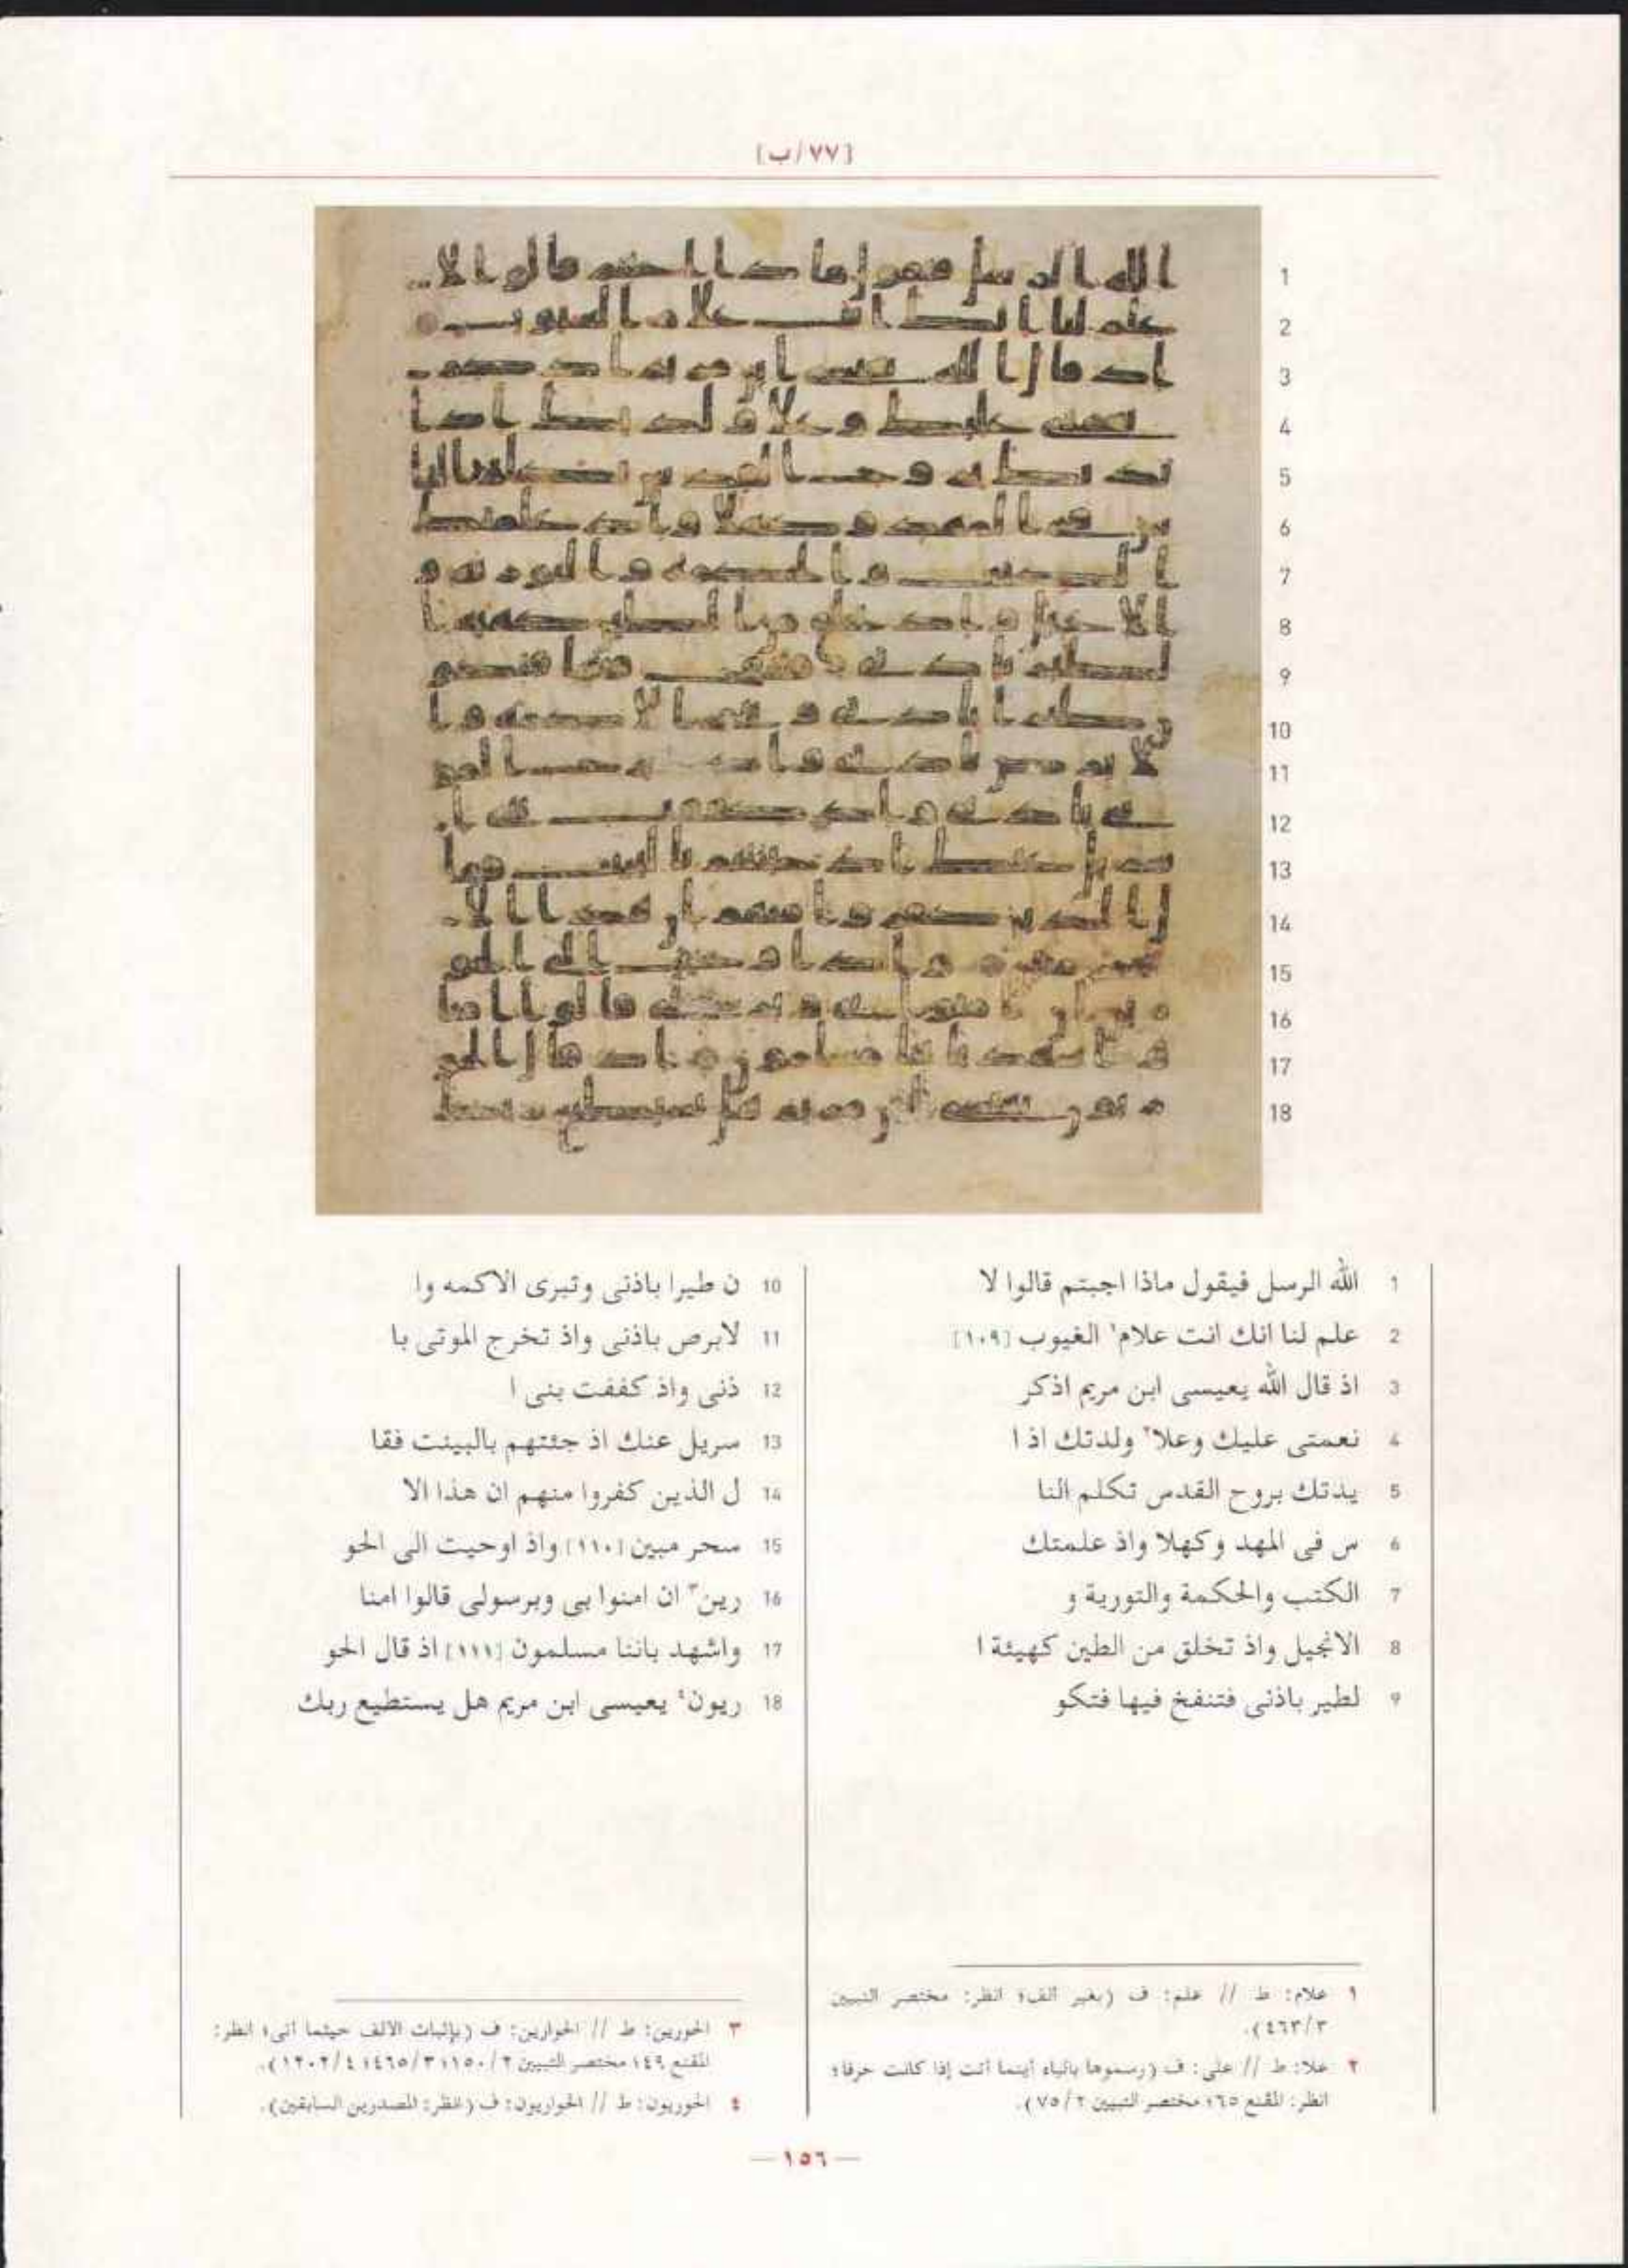 [٧٧/ب]
1 الله الرسل فيقول ماذا اجبتم قالوا لا
2 علم لنا انك انت علام١ الغيوب [١٠٩]
3 اذ قال الله يعيسى ابن مريم اذكر
4 نعمتى عليك وعلا٢ ولدتك اذ ا
5 يدتك بروح القدس تكلم النا
6 س فى المهد وكهلا واذ علمتك
7 الكتب والحكمة والتورية و
8 الانجيل واذ تخلق من الطين كهيئة ا
9 لطير باذنى فتنفخ فيها فتكو
10 ن طيرا باذنى وتبرى الاكمه وا
11 لابرص باذنى واذ تخرج الموتى با
12 ذنى واذ كففت بنى ا
13 سريل عنك اذ جئتهم بالبينت فقا
14 ل الذين كفروا منهم ان هذا الا
15 سحر مبين [١١٠] واذ اوحيت الى الحو
16 رين٣ ان امنوا بى وبرسولى قالوا امنا
17 واشهد باننا مسلمون [١١١] اذ قال الحو
18 ريون٤ يعيسى ابن مريم هل يستطيع ربك
١ علام: ط // علم: ف (بغير ألف؛ انظر: مختصر التبيين
٤٦٣/٣).
٢ علا: ط // على: ف (رسموها بالياء أينما أتت إذا كانت حرفا؛
انظر: المقنع ٦٥؛ مختصر التبيين ٧٥/٢).
٣ الحورين: ط // الحوارين: ف (بإثبات الألف حيثما أتى؛ انظر:
المقنع ٤٩؛ مختصر التبيين ١٥٠/٢؛ ٤٦٥/٣؛ ١٢٠٢/٤).
٤ الحوريون: ط // الحواريون: ف (انظر: المصدرين السابقين).
— ١٥٦ —